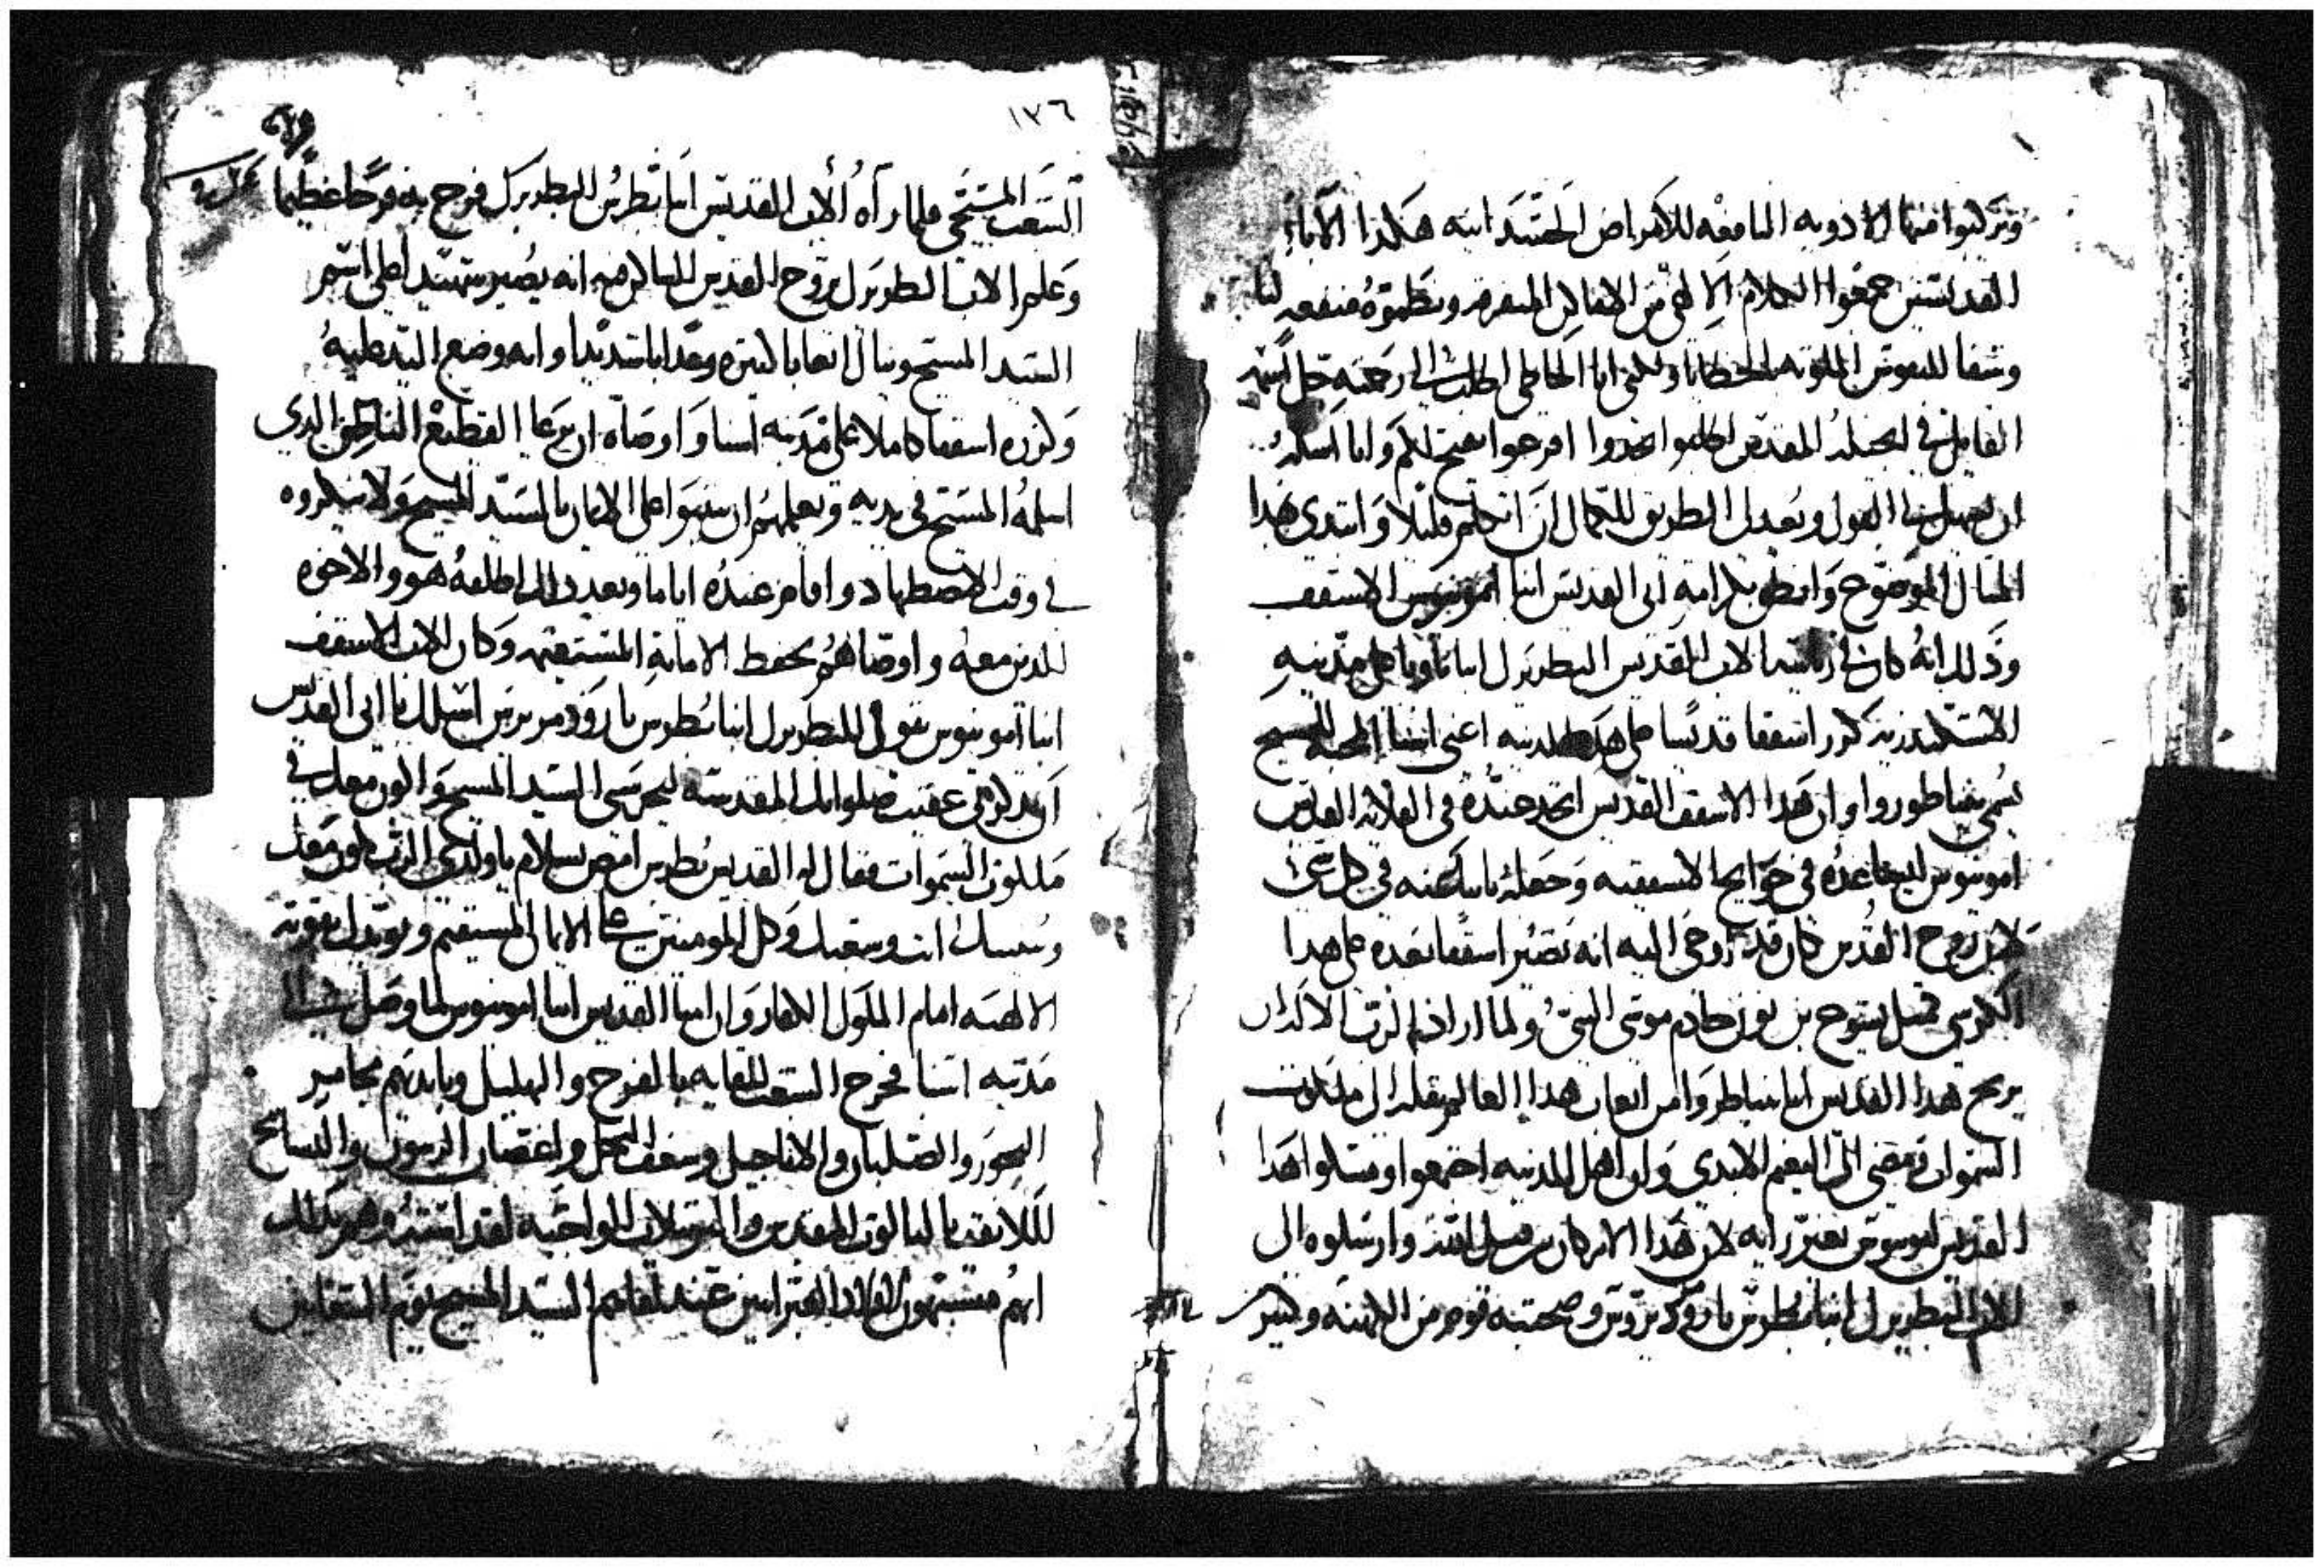 وتركبوا منها الادويه النافعه للامراض الجسدانيه هكذا الآباء
القديسين جمعوا الكلام الالهي من الاماكن المتفرقه ونظموه منفعه لنا
وشفا للنفوس الملوثه بالخطايا ولكني انا الخاطي اطلب الى رحمته جل اسمه
القايل في انجيله المقدس اطلبوا تجدوا اقرعوا يفتح لكم وانا اسله
ان يسهل لنا القول ويعدل الطريق للكمال ان اتكلم قليلا وابتدي هذا
المثال الموضوح وانطق بكرامه ابي القديس انبا امونيوس الاسقف
وذلك انه كان في رياسة الاب القديس البطريرك انبا تاونا على مدينه
الاسكندريه كرز اسقفا قديسا على هذه المدينه اعني اسنا المحبه للمسيح
يسمى
وان هذا الاسقف القديس اتخذ عنده في القلايه القديس
امونيوس ليساعده في حوايج الاسقفيه وجعله يسكنه في كل شي
لان روح القدس كان قد اوحى اليه انه يصير اسقفا بعده على هذا
الكرسي مثل يشوع بن نون خادم موسى النبي ولما اراد الرب الاله ان
يريح هذا القديس انبا من اتعاب هذا العالم ينقله الى ملكوت
السموات فمضى الى النعيم الابدي وان اهل المدينه اجتمعوا ومسكوا هذا
القديس امونيوس بغير رايه لان هذا الامر كان من قبل الله وارسلوه الى
الاب البطريرك انبا بطرس وصحبته قوم من الكهنه وكثير
١٣٦
الشعب المسيحي فلما رآه الاب القديس انبا بطرس البطريرك فرح به فرحا عظيما
وعلم الاب البطريرك بروح القدس الساكن فيه انه يصير شهيدا على اسم
السيد المسيح وينال اتعابا كثيره وعذابا شديدا وانه وضع اليد عليه
وكرزه اسقفا كاملا على مدينه اسنا واوصاه ان يرعا القطيع الناطق الذي
اسلمه المسيح في يديه ويعلمهم ان يثبتوا على الايمان بالسيد المسيح ولا ينكروه
في وقت الاضطهاد واقام عنده اياما وبعد ذلك اطلقه هو والاخوه
الذين معه واوصاهم بحفظ الامانة المستقيمه وكان الاب الاسقف
انبا امونيوس يقول للبطريرك انبا بطرس اسلك يا ابي القديس
ان تذكرني عقيب صلواتك المقدسه ليحرسني السيد المسيح واكون معك في
ملكوت السموات فقال له القديس بطرس امض بسلام يا ولدي الرب يكون معك
ويمسك انت وشعبك وكل المومنين على الايمان المستقيم ويويدك بقوته
الالهيه امام الملوك الكفار وان ابينا القديس انبا امونيوس لما وصل الى
مدينه اسنا فخرج الشعب للقايه بالفرح والتهليل وبايديهم مجامير
البخور والصلبان والاناجيل وسعف النخل واغصان الزيتون والتسابيح
اللايقه بالثالوث المقدس
انهم السيد المسيح